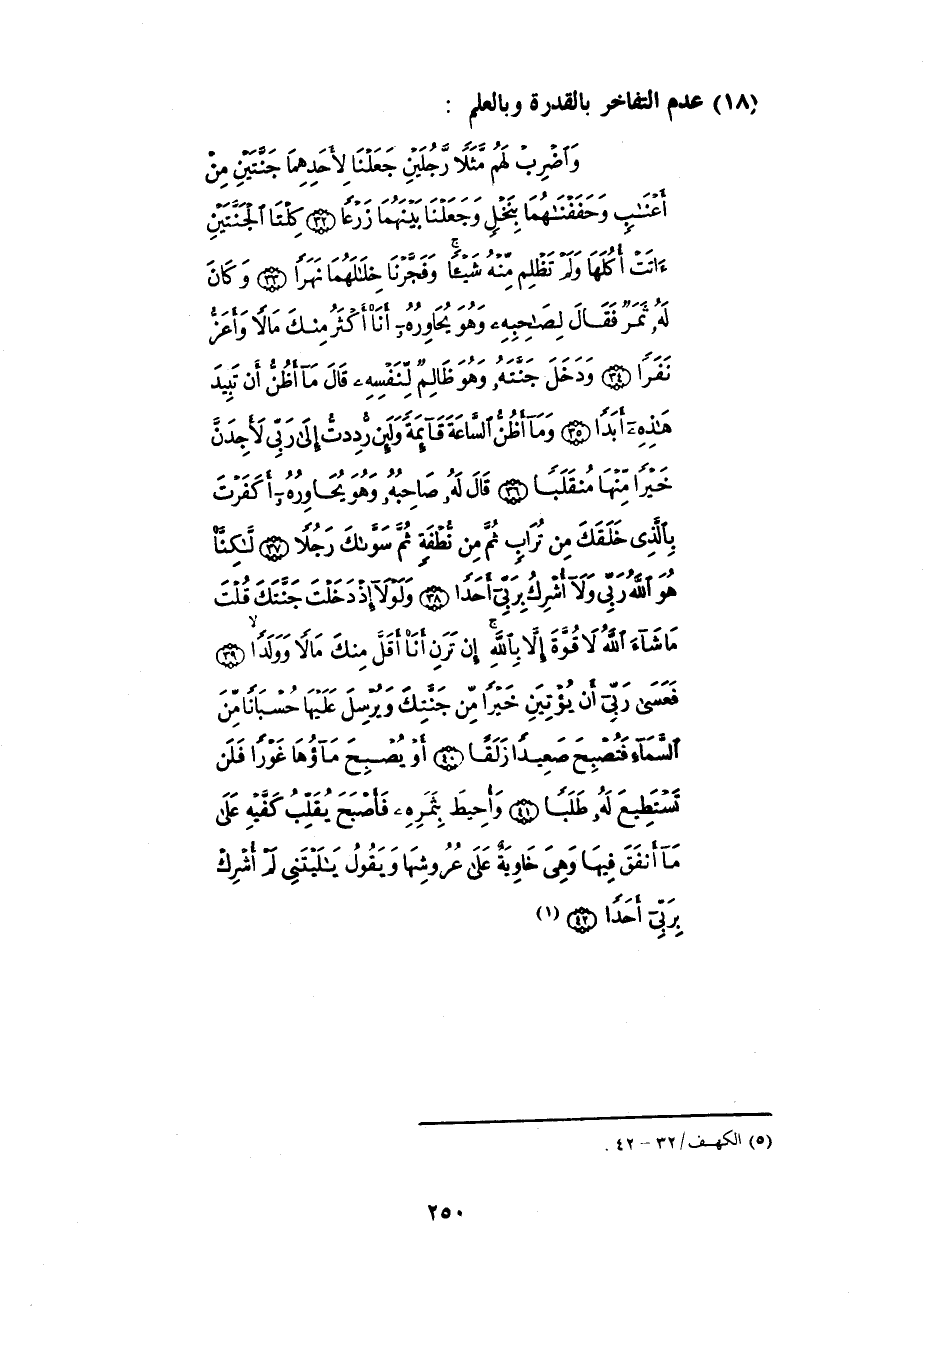 (١٨) عدم التفاخر بالقدرة وبالعلم :
وَٱضۡرِبۡ لَهُم مَّثَلٗا رَّجُلَيۡنِ جَعَلۡنَا لِأَحَدِهِمَا جَنَّتَيۡنِ مِنۡ
أَعۡنَٰبٖ وَحَفَفۡنَٰهُمَا بِنَخۡلٖ وَجَعَلۡنَا بَيۡنَهُمَا زَرۡعٗا ٣٢ كِلۡتَا ٱلۡجَنَّتَيۡنِ
ءَاتَتۡ أُكُلَهَا وَلَمۡ تَظۡلِم مِّنۡهُ شَيۡـٔٗاۚ وَفَجَّرۡنَا خِلَٰلَهُمَا نَهَرٗا ٣٣ وَكَانَ
لَهُۥ ثَمَرٞ فَقَالَ لِصَٰحِبِهِۦ وَهُوَ يُحَاوِرُهُۥٓ أَنَا۠ أَكۡثَرُ مِنكَ مَالٗا وَأَعَزُّ
نَفَرٗا ٣٤ وَدَخَلَ جَنَّتَهُۥ وَهُوَ ظَالِمٞ لِّنَفۡسِهِۦ قَالَ مَآ أَظُنُّ أَن تَبِيدَ
هَٰذِهِۦٓ أَبَدٗا ٣٥ وَمَآ أَظُنُّ ٱلسَّاعَةَ قَآئِمَةٗ وَلَئِن رُّدِدتُّ إِلَىٰ رَبِّي لَأَجِدَنَّ
خَيۡرٗا مِّنۡهَا مُنقَلَبٗا ٣٦ قَالَ لَهُۥ صَاحِبُهُۥ وَهُوَ يُحَاوِرُهُۥٓ أَكَفَرۡتَ
بِٱلَّذِي خَلَقَكَ مِن تُرَابٖ ثُمَّ مِن نُّطۡفَةٖ ثُمَّ سَوَّىٰكَ رَجُلٗا ٣٧ لَّٰكِنَّا۠
هُوَ ٱللَّهُ رَبِّي وَلَآ أُشۡرِكُ بِرَبِّيٓ أَحَدٗا ٣٨ وَلَوۡلَآ إِذۡ دَخَلۡتَ جَنَّتَكَ قُلۡتَ
مَا شَآءَ ٱللَّهُ لَا قُوَّةَ إِلَّا بِٱللَّهِۚ إِن تَرَنِ أَنَا۠ أَقَلَّ مِنكَ مَالٗا وَوَلَدٗا ٣٩
فَعَسَىٰ رَبِّيٓ أَن يُؤۡتِيَنِ خَيۡرٗا مِّن جَنَّتِكَ وَيُرۡسِلَ عَلَيۡهَا حُسۡبَانٗا مِّنَ
ٱلسَّمَآءِ فَتُصۡبِحَ صَعِيدٗا زَلَقًا ٤٠ أَوۡ يُصۡبِحَ مَآؤُهَا غَوۡرٗا فَلَن
تَسۡتَطِيعَ لَهُۥ طَلَبٗا ٤١ وَأُحِيطَ بِثَمَرِهِۦ فَأَصۡبَحَ يُقَلِّبُ كَفَّيۡهِ عَلَىٰ
مَآ أَنفَقَ فِيهَا وَهِيَ خَاوِيَةٌ عَلَىٰ عُرُوشِهَا وَيَقُولُ يَٰلَيۡتَنِي لَمۡ أُشۡرِكۡ
بِرَبِّيٓ أَحَدٗا ٤٢ (١)
(٥) الكهف/٣٢ – ٤٢ .
٢٥٠